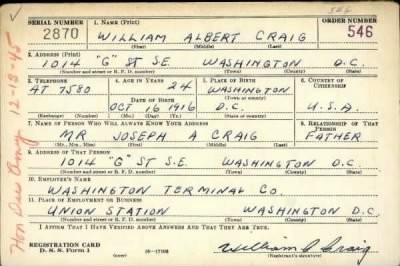 SERIAL NUMBER 1. NAME (Print) ORDER NUMBER
2870 WILLIAM ALBERT CRAIG 546
(First) (Middle) (Last)
2. ADDRESS (Print)
1014 "G" ST SE. WASHINGTON D.C.
(Number and street or R. F. D. number) (Town) (County) (State)
3. TELEPHONE 4. AGE IN YEARS 5. PLACE OF BIRTH 6. COUNTRY OF CITIZENSHIP
AT 7580 24 WASHINGTON
(Town or county)
DATE OF BIRTH
OCT 16 1916 D.C. U.S.A.
(Exchange) (Number) (Mo.) (Day) (Yr.) (State or country)
7. NAME OF PERSON WHO WILL ALWAYS KNOW YOUR ADDRESS 8. RELATIONSHIP OF THAT PERSON
MR JOSEPH A CRAIG FATHER
(Mr., Mrs., Miss) (First) (Middle) (Last)
9. ADDRESS OF THAT PERSON
1014 "G" ST S.E. WASHINGTON D.C.
(Number and street or R. F. D. number) (Town) (County) (State)
10. EMPLOYER'S NAME
WASHINGTON TERMINAL CO.
11. PLACE OF EMPLOYMENT OR BUSINESS
UNION STATION WASHINGTON D.C.
(Number and street or R. F. D. number) (Town) (County) (State)
I AFFIRM THAT I HAVE VERIFIED ABOVE ANSWERS AND THAT THEY ARE TRUE.
REGISTRATION CARD
D. S. S. Form 1 16-17105 William A Craig
(Registrant's signature)
Hon Dis Army 12-13-45